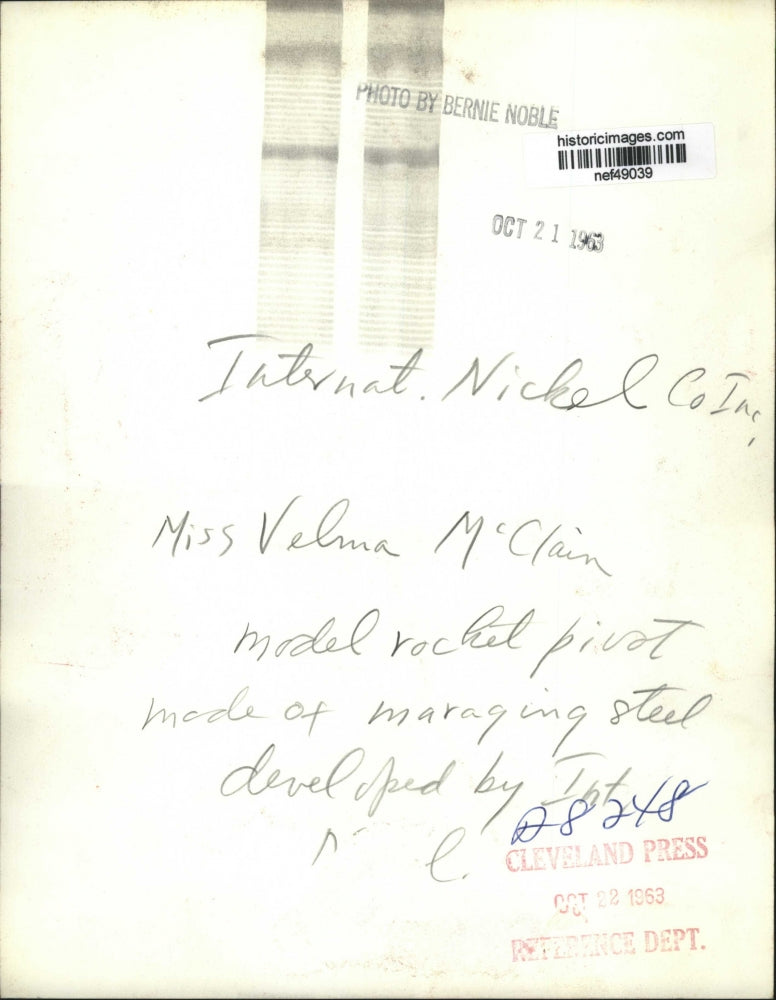 PHOTO BY BERNIE NOBLE
historicimages.com
nef49039
OCT 21 1963
Internat. Nickel Co Inc,
Miss Velma McClain
model rocket pivot
made of maraging steel
developed by Int
28248
CLEVELAND PRESS
OCT 22 1963
REFERENCE DEPT.